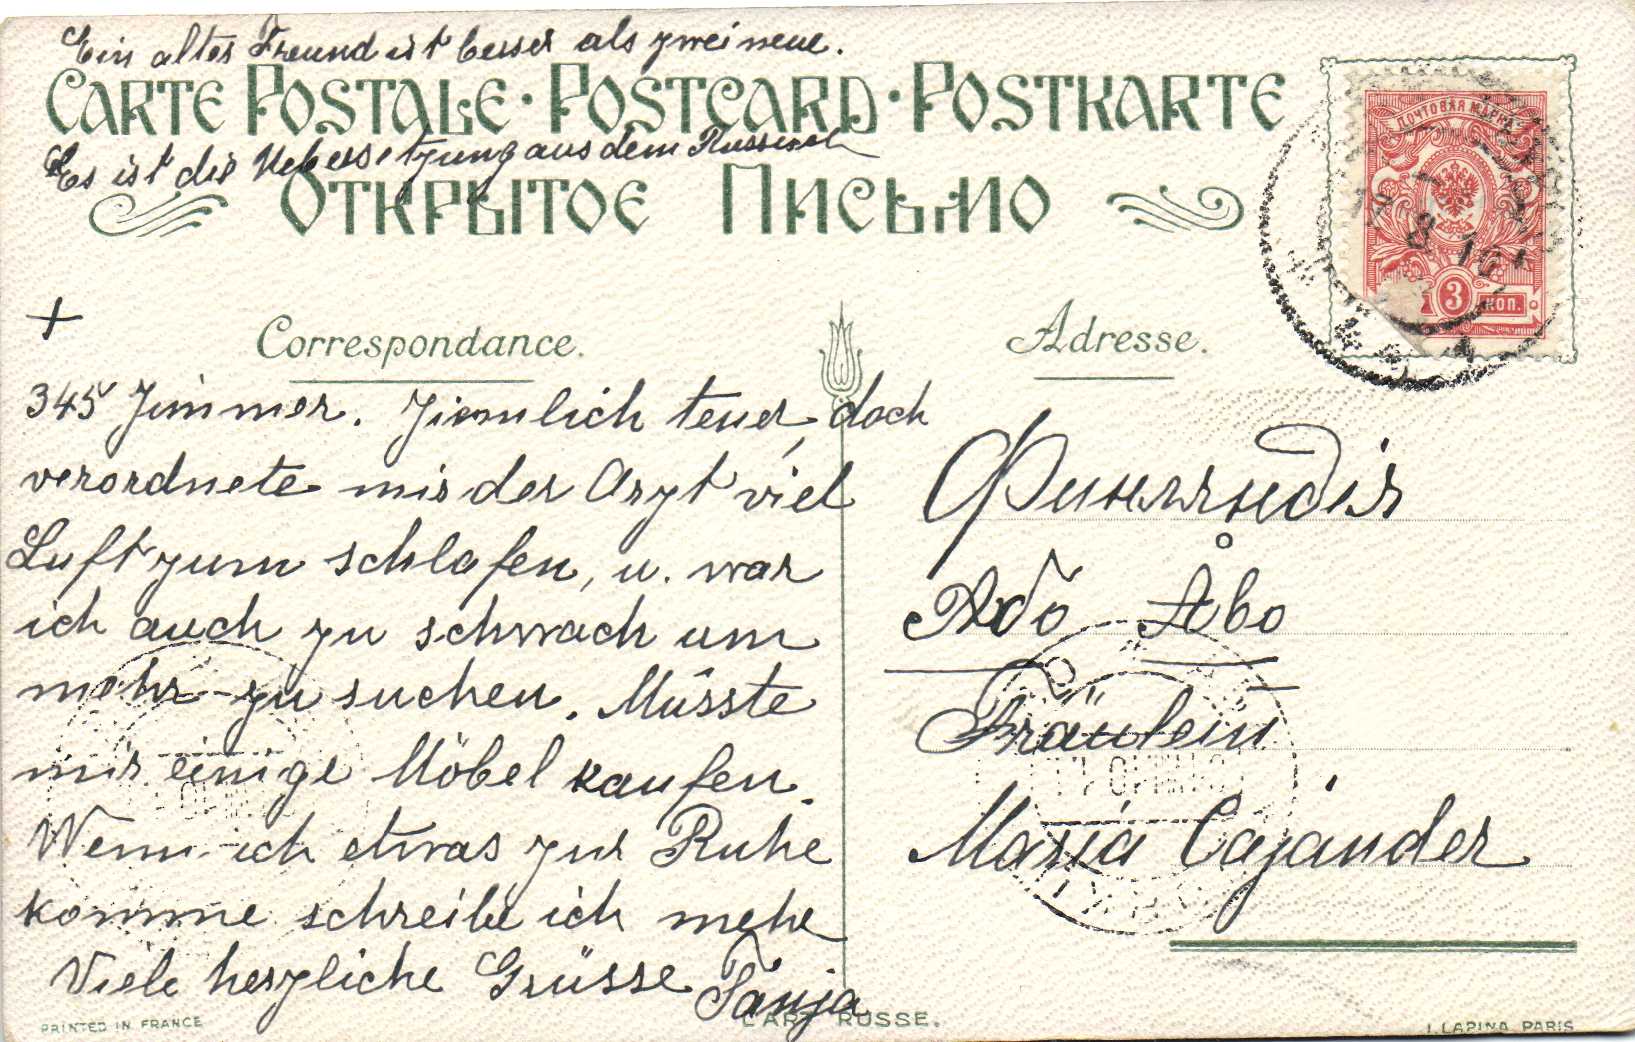 Ein alter Freund ist besser als zwei neue.
CARTE POSTALE · POSTCARD · POSTKARTE
Es ist die Uebersetzung aus dem Russisch
ОТКРЫТОЕ ПИСЬМО
ПОЧТОВАЯ МАРКА
12 8 10
3 КОП.
+
Correspondance.
345 Zimmer. Ziemlich teuer, doch
verordnete mir der Arzt viel
Luft zum schlafen, u. war
ich auch zu schwach um
mehr zu suchen. Müsste
mir einige Möbel kaufen.
Wenn ich etwas zur Ruhe
komme schreibe ich mehr
Viele herzliche Grüsse Tanja
Adresse.
Финляндія
Або Åbo
Fräulein
Maria Cajander
PRINTED IN FRANCE
L'ART RUSSE.
I. LAPINA PARIS